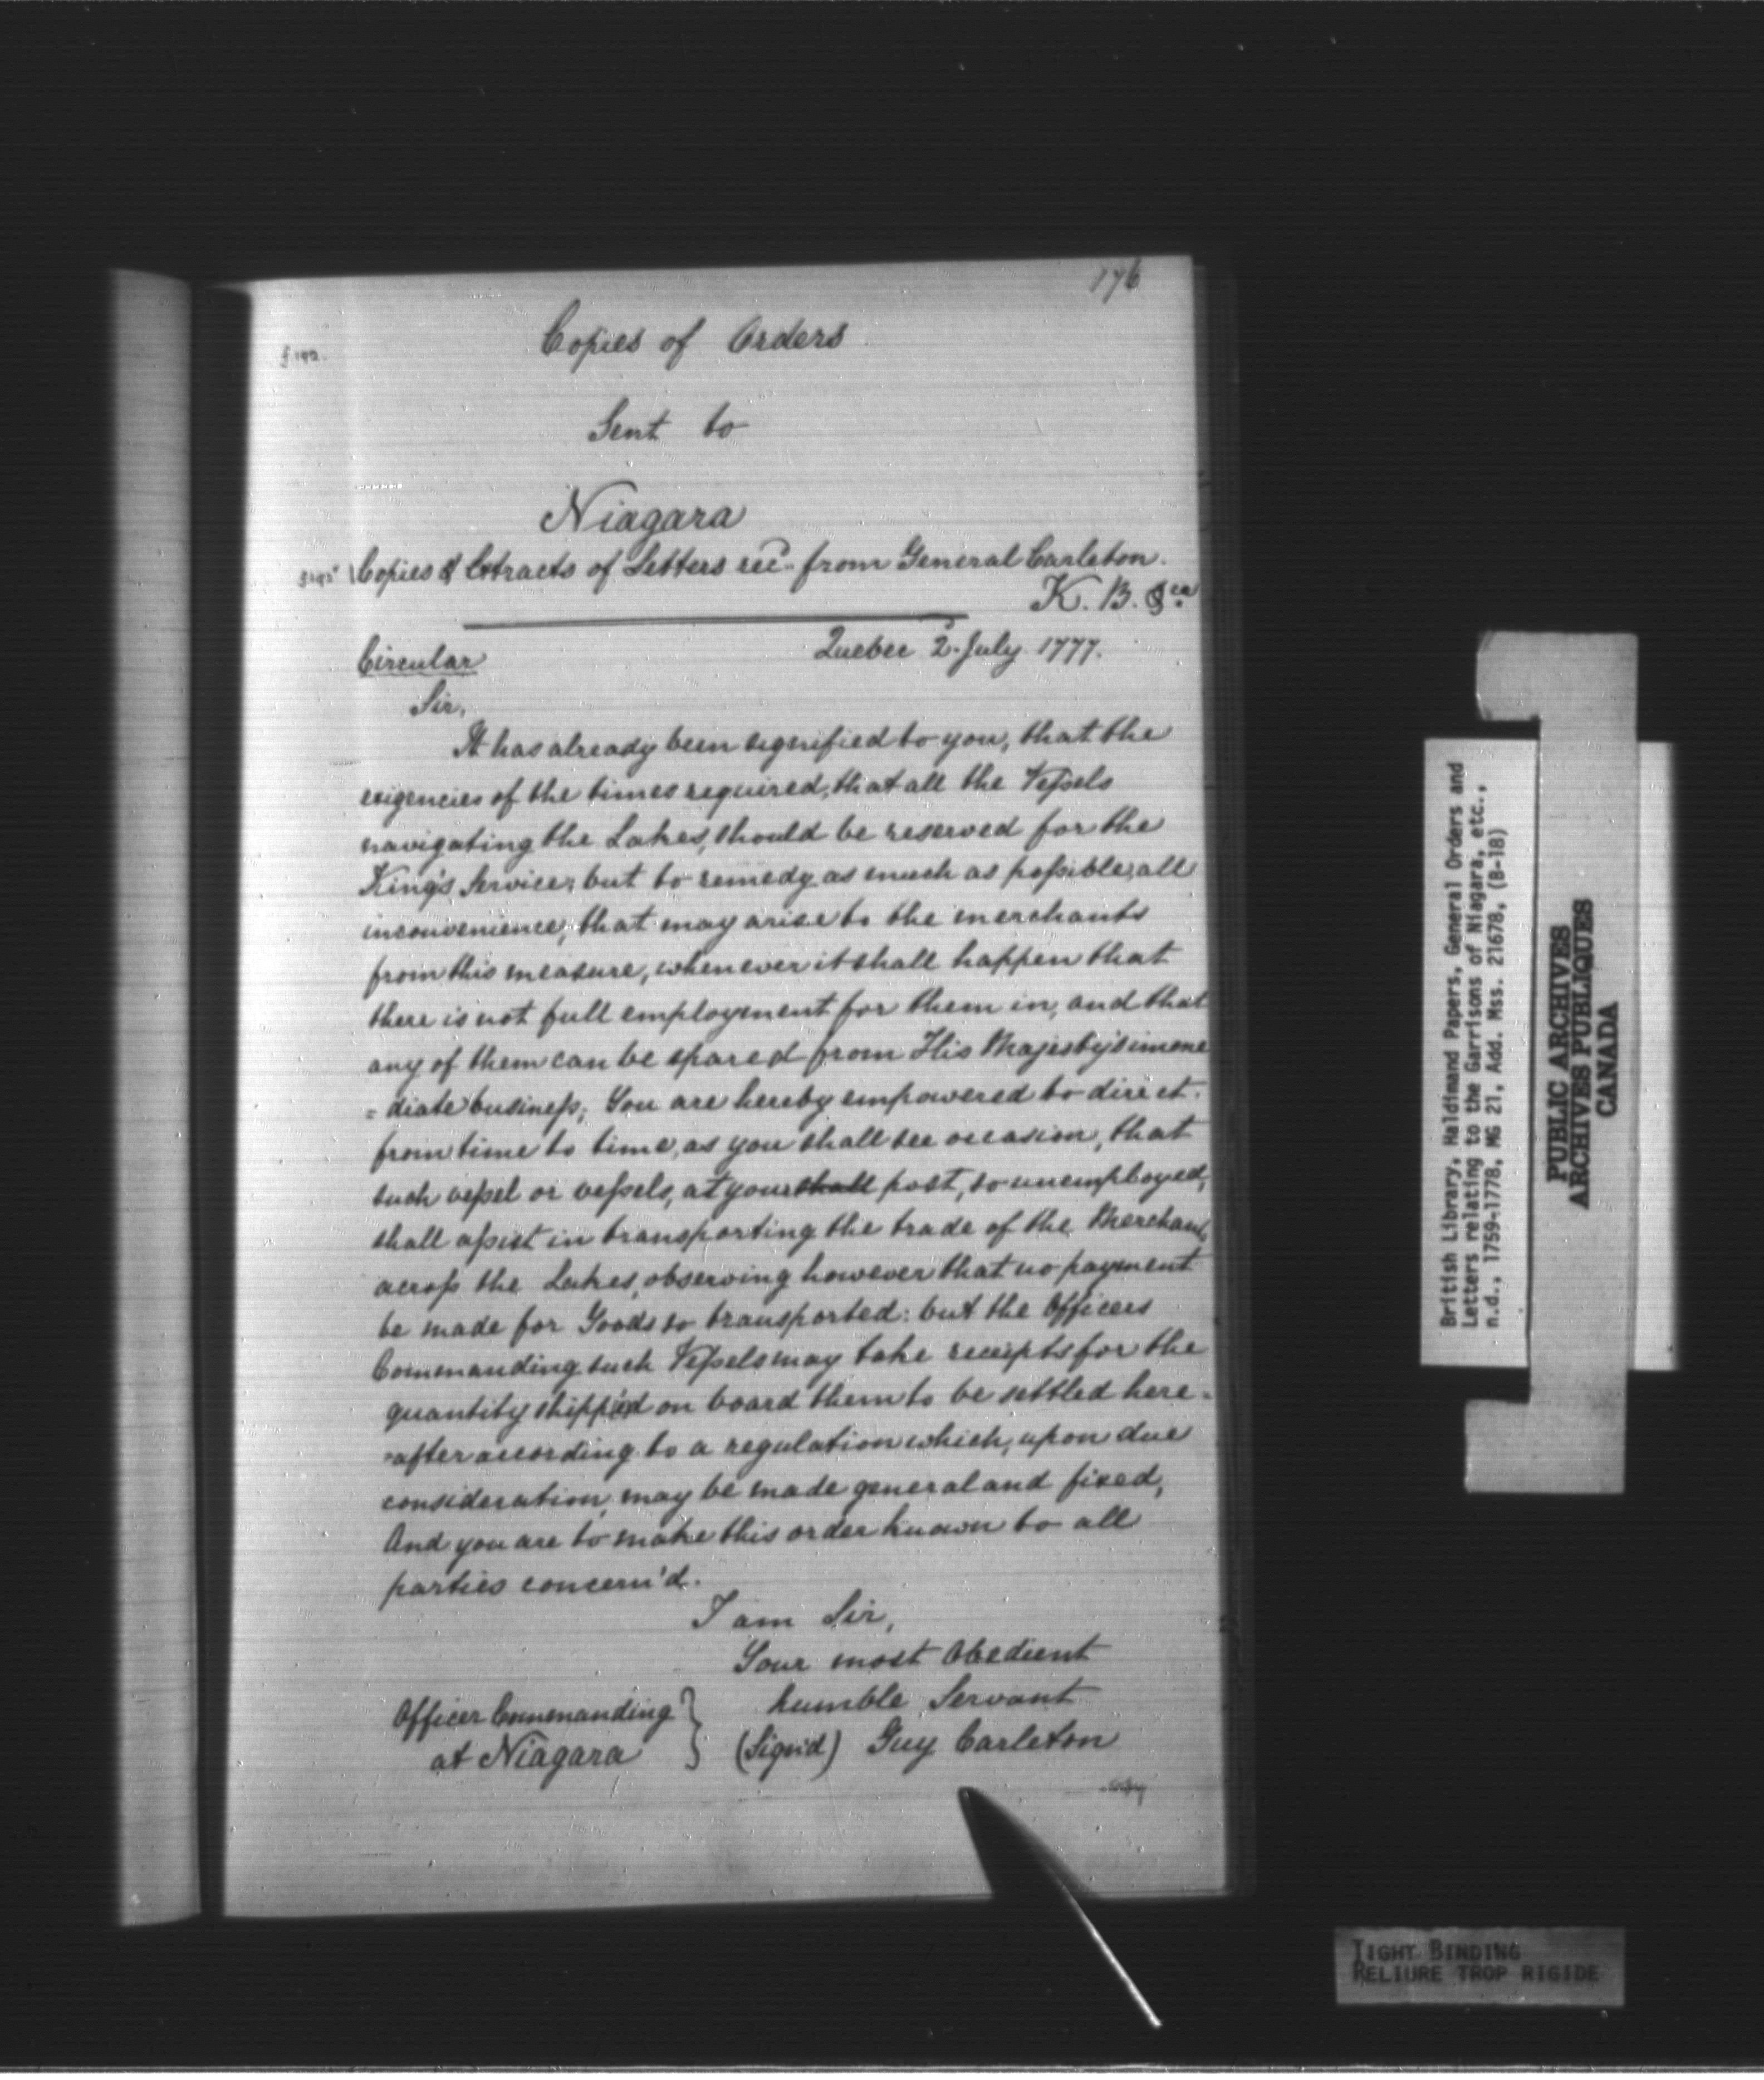 176
f.192.
Copies of Orders
Sent to
Niagara
Copies & Extracts of Letters rec^d from General Carleton.
K. B. &ca
Circular
Quebec 2d July 1777.
Sir,
It has already been signified to you, that the
exigencies of the times required, that all the Vessels
navigating the Lakes, should be reserved for the
King's Service; but to remedy as much as possible, all
inconvenience, that may arise to the merchants
from this measure, whenever it shall happen that
there is not full employment for them in, and that
any of them can be spared from His Majesty's imme
= diate business; You are hereby empowered to direct.
from time to time, as you shall see occasion, that
such vessel or vessels, at your shall post, so unemployed,
shall assist in transporting the trade of the Merchants,
across the Lakes, observing however that no payment
be made for Goods so transported: but the Officers
Commanding such Vessels may take receipts for the
quantity shipped on board them to be settled here =
=after according to a regulation which, upon due
consideration, may be made general and fixed,
And you are to make this order known to all
parties concern'd.
I am Sir,
Your most Obedient
humble Servant
(Sign'd) Guy Carleton
Officer Commanding
at Niagara
British Library, Haldimand Papers, General Orders and
Letters relating to the Garrisons of Niagara, etc.,
n.d., 1759-1778, MG 21, Add. Mss. 21678, (B-18)
PUBLIC ARCHIVES
ARCHIVES PUBLIQUES
CANADA
TIGHT BINDING
RELIURE TROP RIGIDE